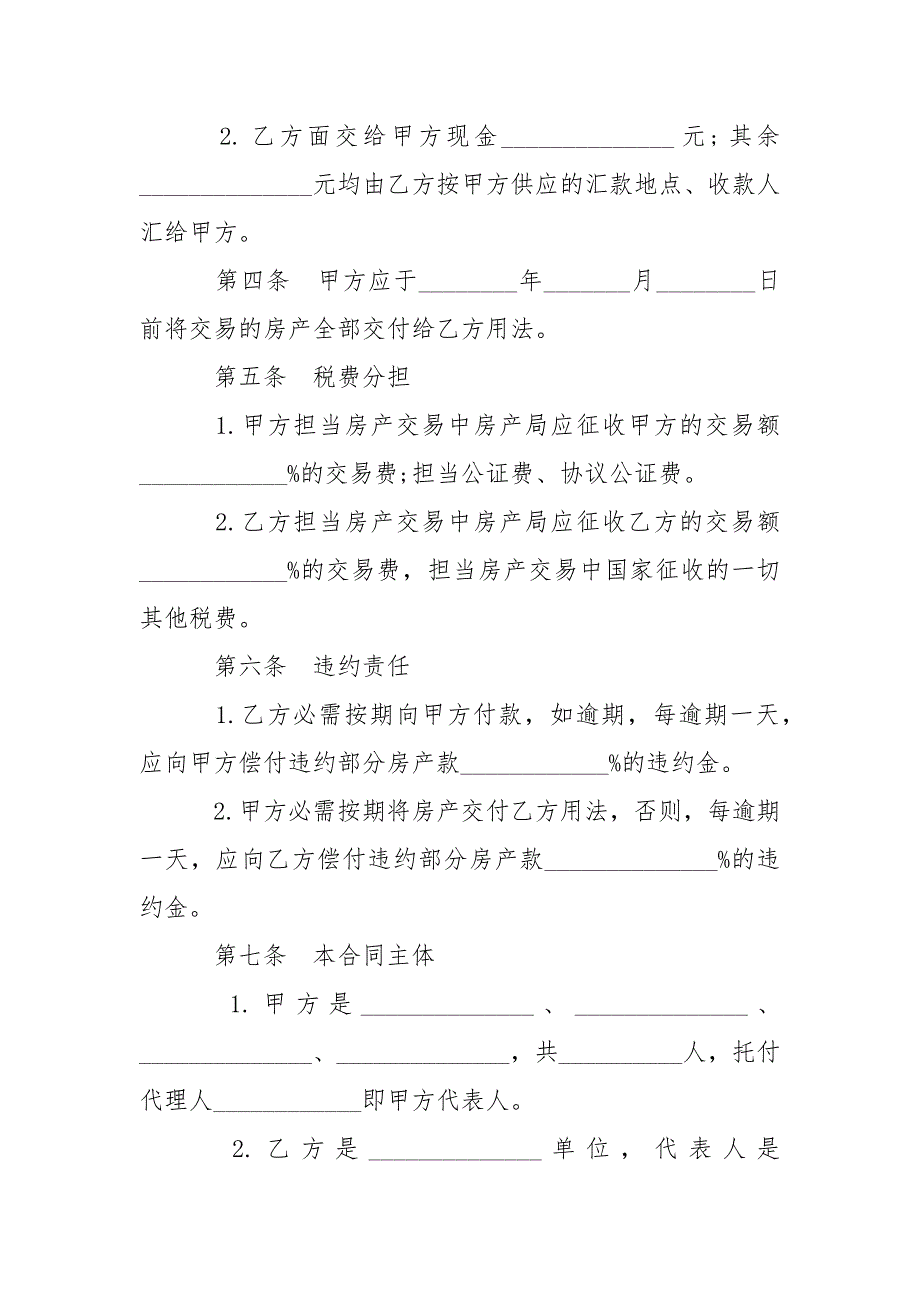 2. 乙方面交给甲方现金______________元;其余
______________元均由乙方按甲方供应的汇款地点、收款人
汇给甲方。
第四条　甲方应于________年_______月________日
前将交易的房产全部交付给乙方用法。
第五条　税费分担
1.甲方担当房产交易中房产局应征收甲方的交易额
____________%的交易费;担当公证费、协议公证费。
2.乙方担当房产交易中房产局应征收乙方的交易额
____________%的交易费，担当房产交易中国家征收的一切
其他税费。
第六条　违约责任
1.乙方必需按期向甲方付款，如逾期，每逾期一天，
应向甲方偿付违约部分房产款____________%的违约金。
2.甲方必需按期将房产交付乙方用法，否则，每逾期
一天，应向乙方偿付违约部分房产款______________%的违
约金。
第七条　本合同主体
1. 甲方是______________、______________、
______________、________________，共__________人，托付
代理人____________即甲方代表人。
2. 乙方是______________单位，代表人是